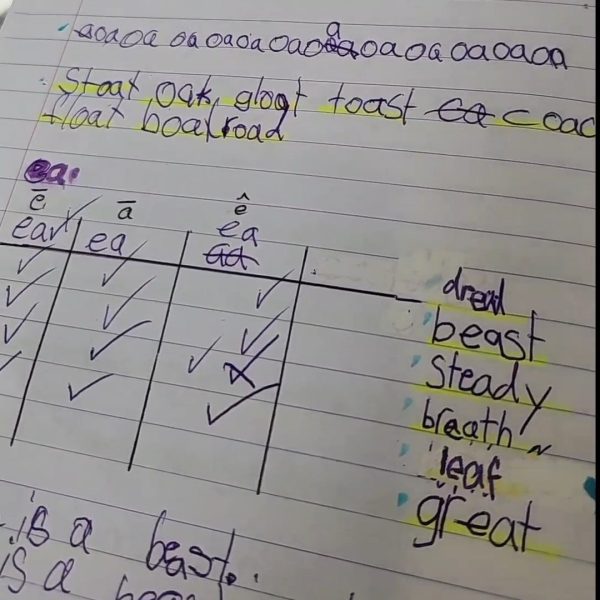 aoaoa oaoaoaoaoaoaoaoaoaoaoa
Stoat, oak, gloat toast coac
float boat road
ea.
ē ā ê
ea ea ea
dread
beast
steady
breath
leaf
great
is a beast.
is a